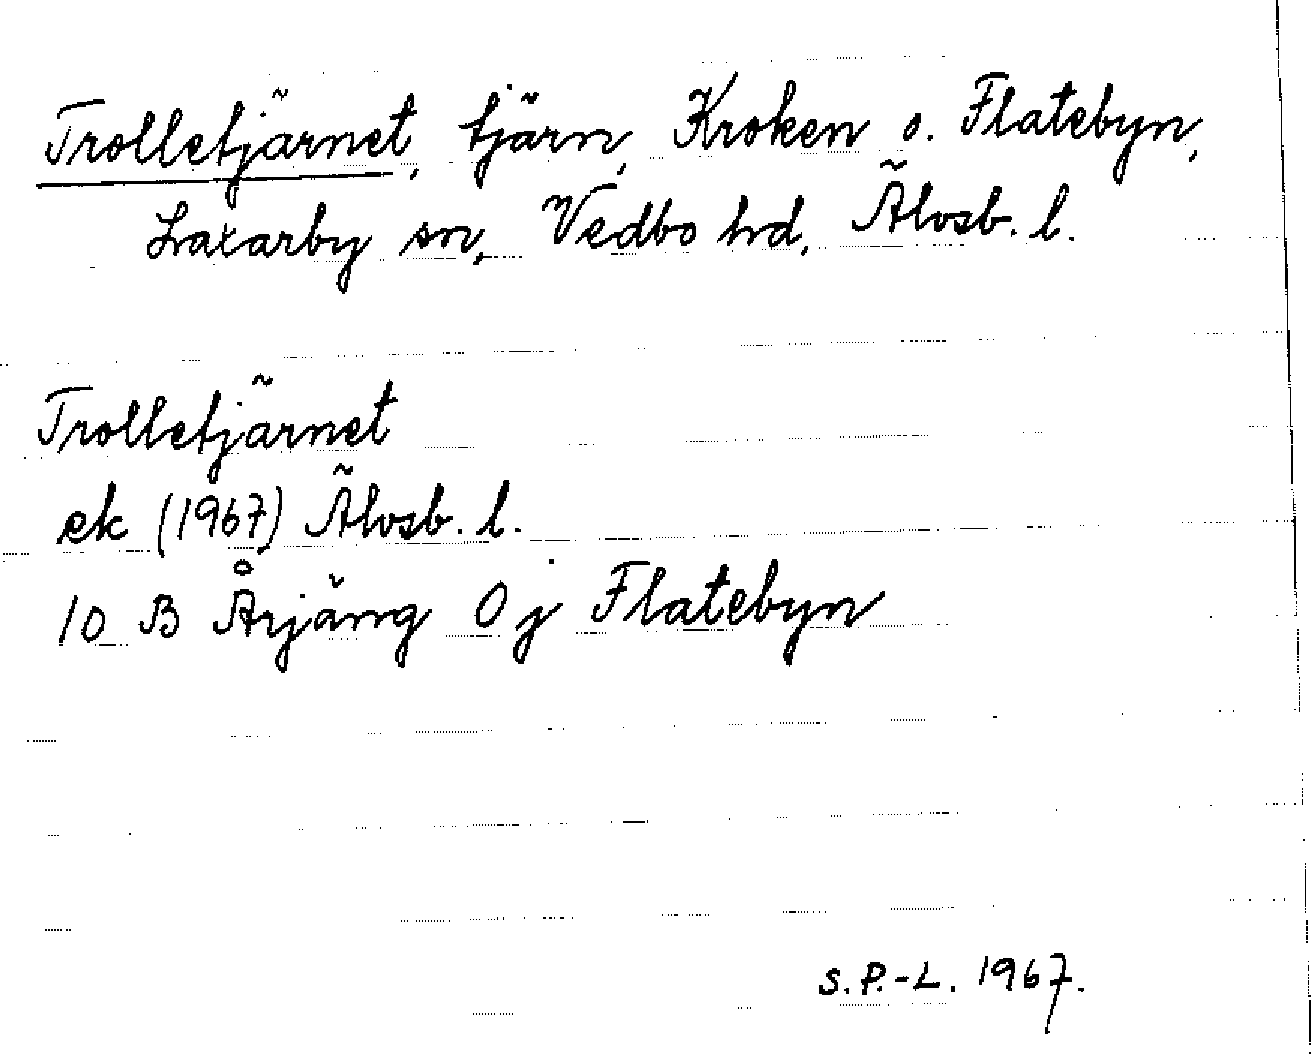 Trolletjärnet, tjärn, Kroken o. Flatebyn,
Laxarby sn, Vedbo hd, Älvsb. l.
Trolletjärnet
ek (1967) Älvsb. l.
10 B Årjäng 0 j Flatebyn
S.P.-L. 1967.